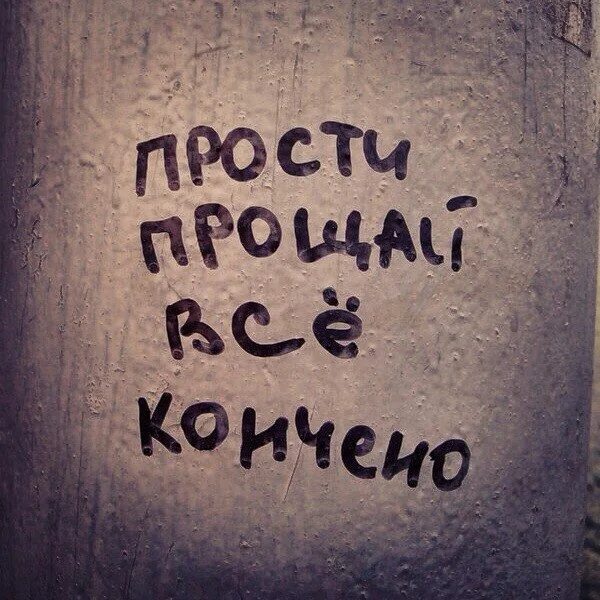 ПРОСТИ
ПРОЩАЙ
ВСЁ
КОНЧЕНО